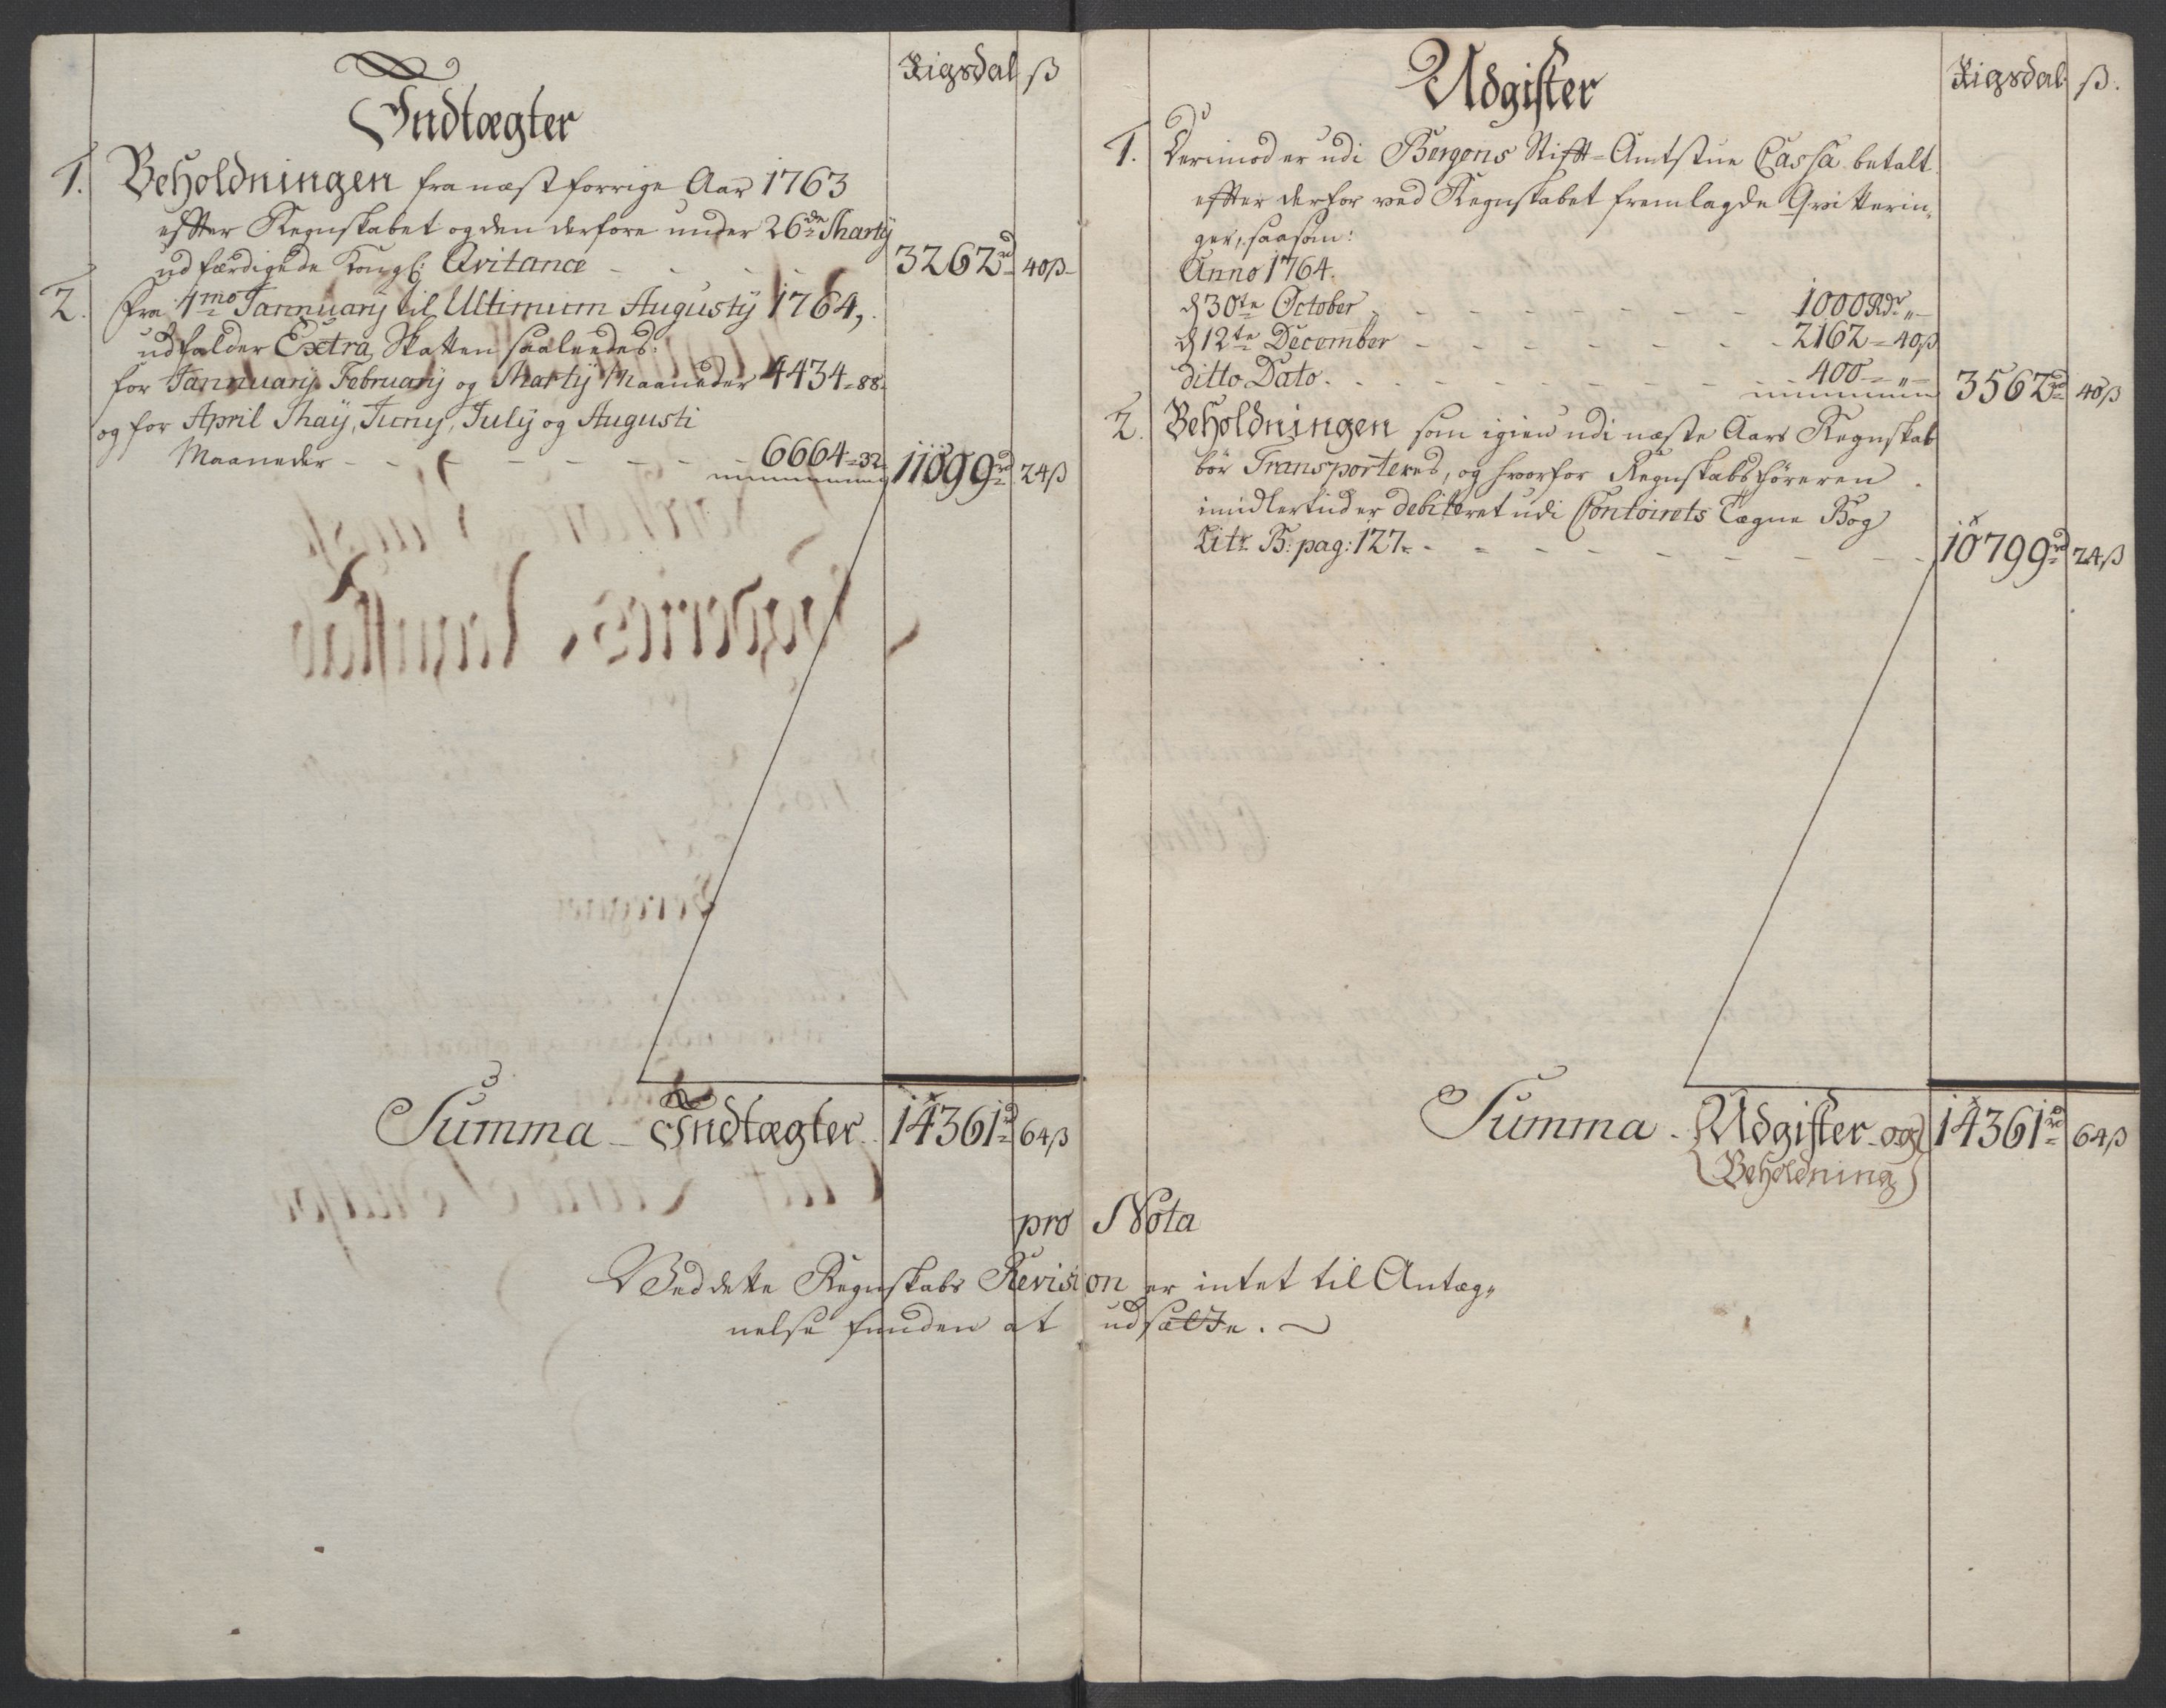 Rigsdal ß
Indtægter
1. Beholdningen fra næst forrige Aar 1763
effter Regnskabet og den derfore under 26de Marty
udfærdigede Kongl: Qvitance - - - - 3262rd 40ß
2. Fra 1mo Jannuary til Ultimum Augusty 1764,
udfalder Extra Skatten saaleedes.
for Jannuary, February og Marty Maaneder 4434 = 88.
og for April Maÿ, Juny, July og Augusti
Maaneder - - - - - - - 6664 = 32 11099rd 24ß
Summa - Indtægter. 14361rd 64ß
Rigsdal ß.
Udgifter
1. Derimod er udi Bergens Stifft-Amtstue Cassa betalt
effter derfor ved Regnskabet fremlagde Qvitterin,
ger, saasom:
Anno 1764.
d 30te October - - - - - - - 1000 Rdr „
d 12te December - - - - - - - 2162 = 40ß
ditto Dato. - - - - - - - 400 = „ 3562rd 40ß
2. Beholdningen som igien udi næste Aars Regnskab
bör Transporteres, og hvorfor Regnskabsföreren
imidlertid er debiteret udi Contoirets Tægne Bog
Litr B: pag: 127. - - - - - - - 10799rd 24ß
Summa - Udgifter og 14361rd 64ß
Beholdning
pro Nota
Ved dette Regnskabs Revision er intet til Antæg„
nelse funden at udsætte.